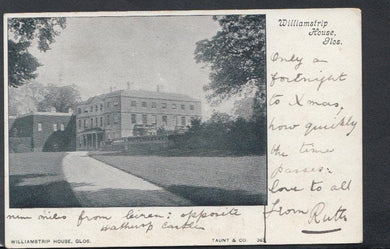 Williamstrip
House,
Glos.
Only a
fortnight
to Xmas,
how quickly
the time
passes.
love to all
from Ruth
miles from Ciren: opposite
castle
WILLIAMSTRIP HOUSE, GLOS.
TAUNT & CO.